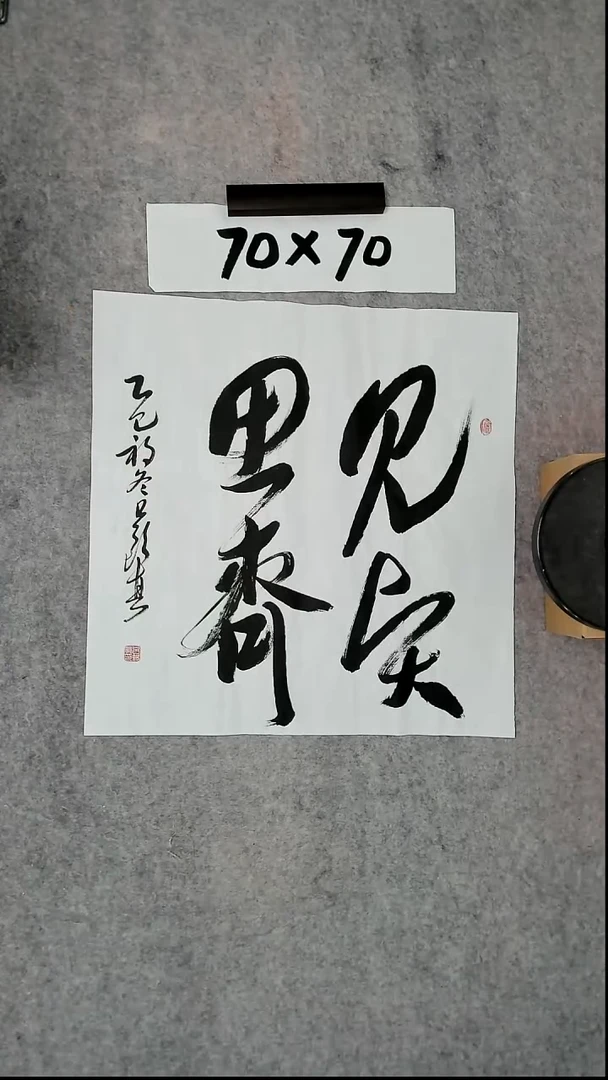 70×70
见贤
思齐
乙巳初冬日